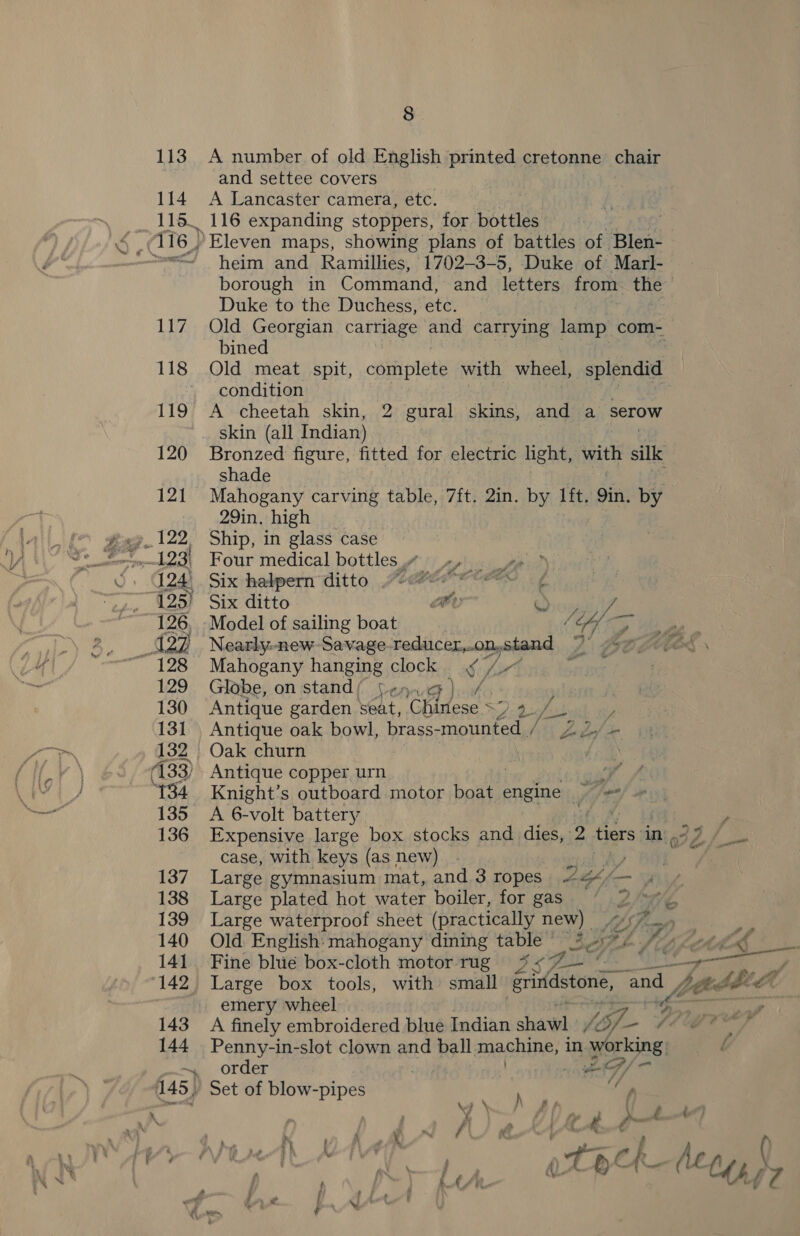 8
113 A number of old English printed cretonne chair
and settee covers
114 A Lancaster camera, etc.
115 116 expanding stoppers, for bottles
116 Eleven maps, showing plans of battles of Blen-
heim and Ramillies, 1702-3-5, Duke of Marl-
borough in Command, and letters from the
Duke to the Duchess, etc.
117 Old Georgian carriage and carrying lamp com-
bined
118 Old meat spit, complete with wheel, splendid
condition
119 A cheetah skin, 2 gural skins, and a serow
skin (all Indian)
120 Bronzed figure, fitted for electric light, with silk
shade
121 Mahogany carving table, 7ft. 2in. by 1ft. 9in. by
29in. high
122 Ship, in glass case
123 Four medical bottles
124 Six halpern ditto
125 Six ditto
126 Model of sailing boat
127 Nearly new Savage reducer, on stand
128 Mahogany hanging clock
129 Globe, on stand
130 Antique garden seat, Chinese
131 Antique oak bowl, brass-mounted
132 Oak churn
133 Antique copper urn
134 Knight's outboard motor boat engine
135 A 6-volt battery
136 Expensive large box stocks and dies, 2 tiers in
case, with keys (as new)
137 Large gymnasium mat, and 3 ropes
138 Large plated hot water boiler, for gas
139 Large waterproof sheet (practically new)
140 Old English mahogany dining table
141 Fine blue box-cloth motor rug
142 Large box tools, with small grindstone, and
emery wheel
143 A finely embroidered blue Indian shawl
144 Penny-in-slot clown and ball machine, in working
order
145 Set of blow-pipes